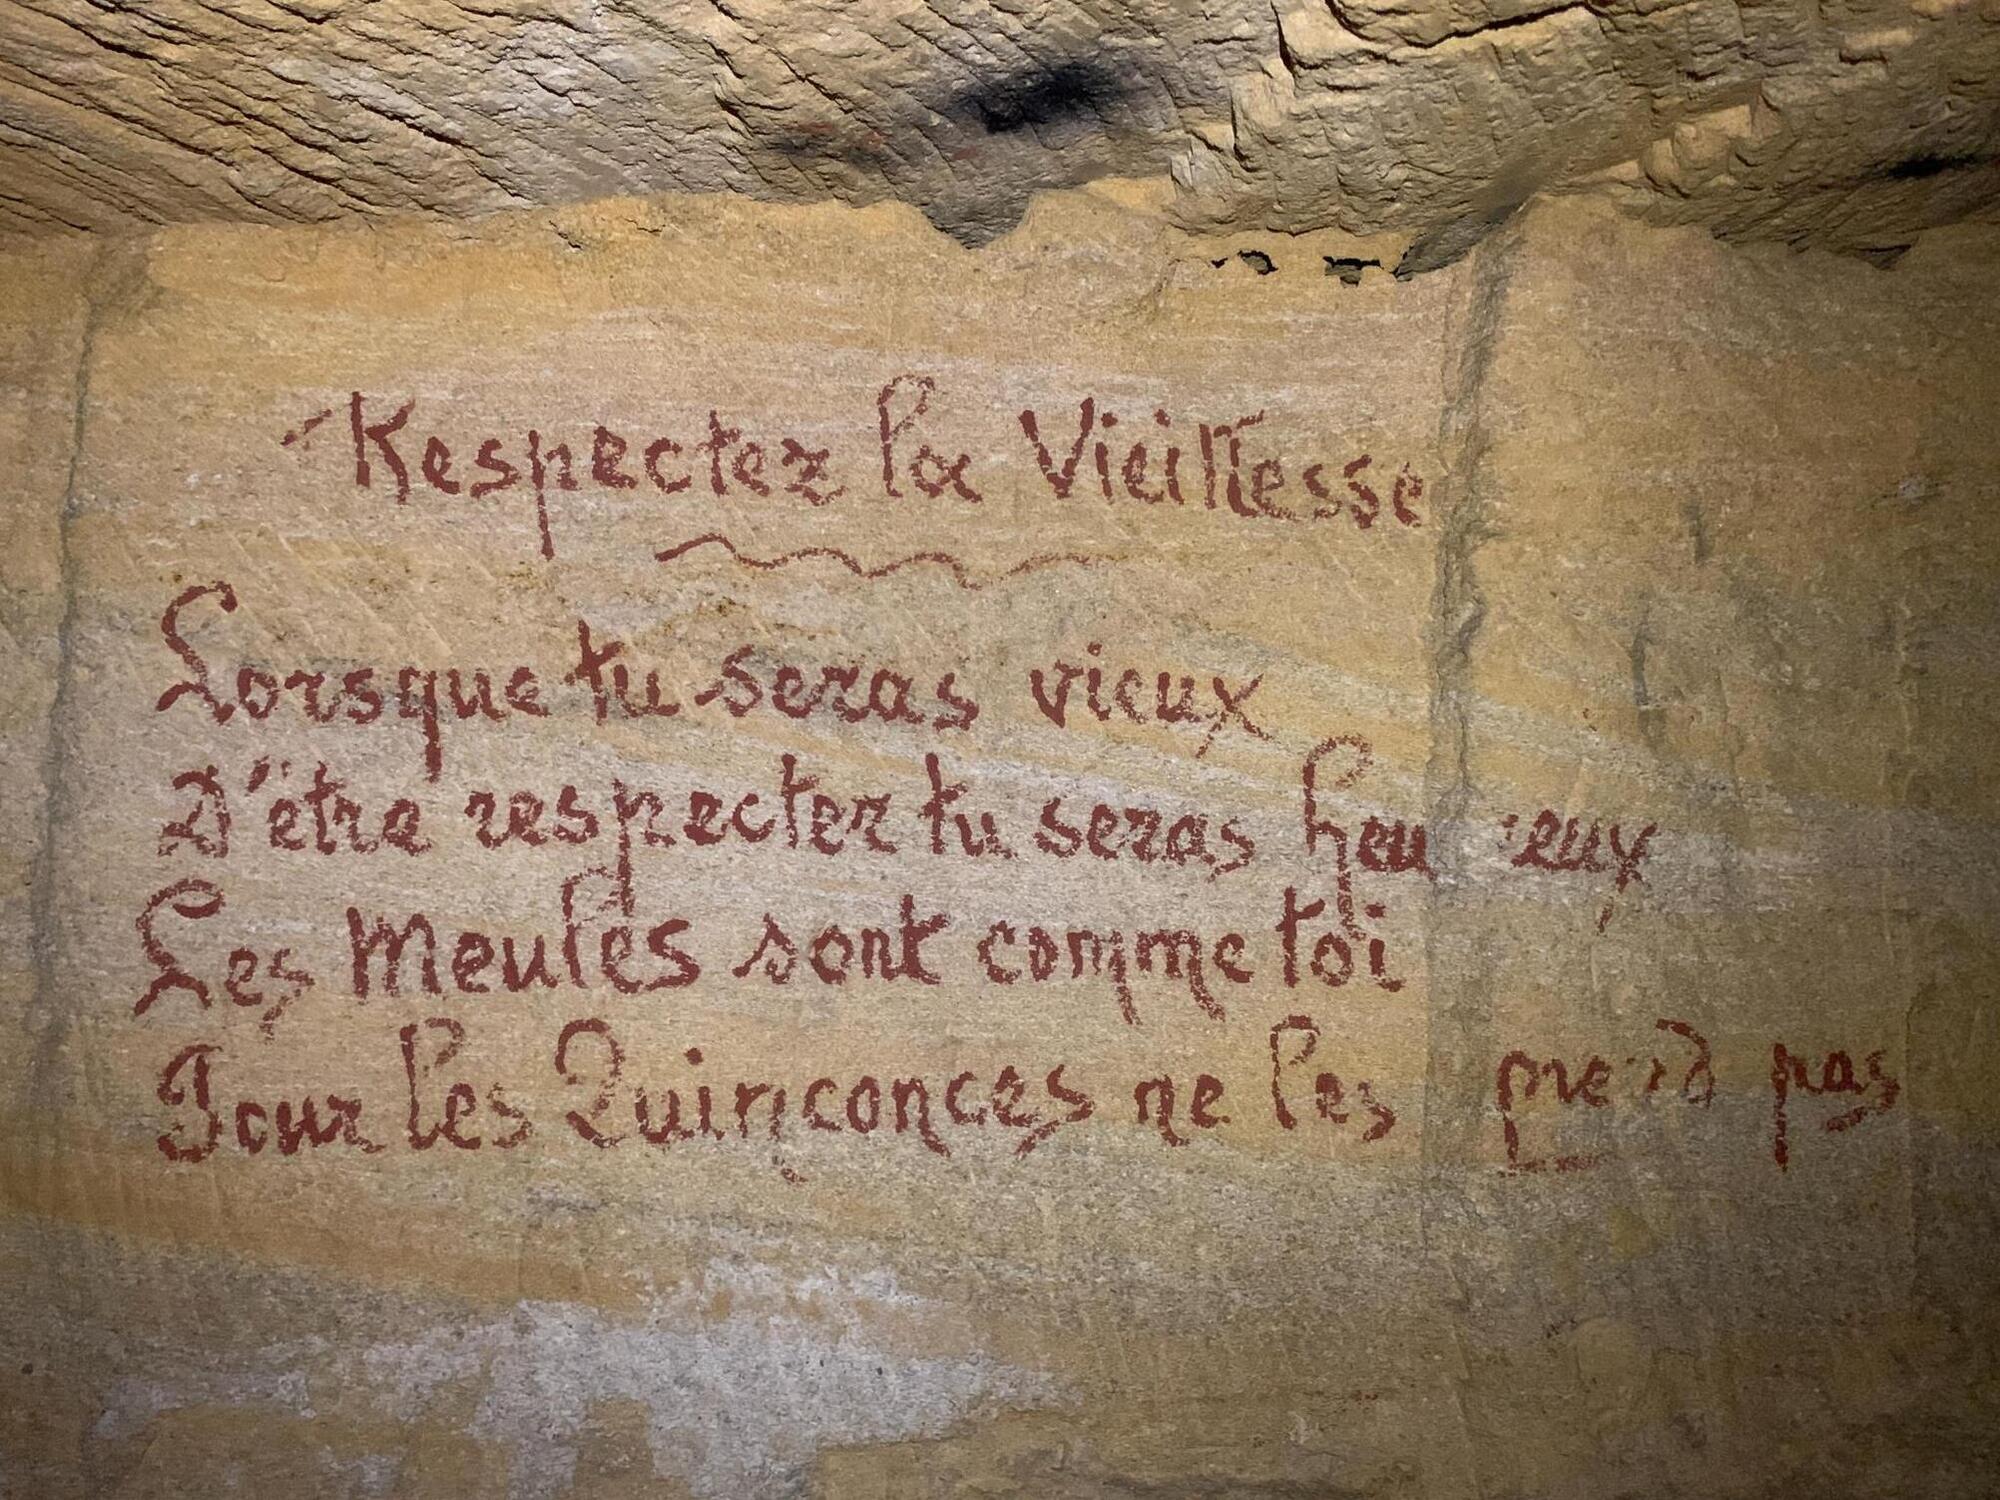 Respectez la Vieillesse
Lorsque tu seras vieux
D'être respecter tu seras heureux
Les Meules sont comme toi
Pour les Quinconces ne les prend pas